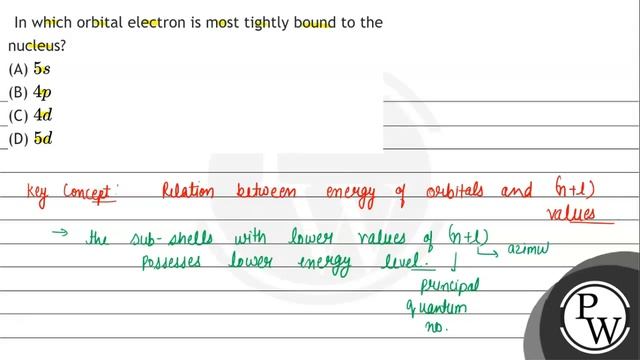 In which orbital electron is most tightly bound to the
nucleus?
(A) 5s
(B) 4p
(C) 4d
(D) 5d
Key Concept: Relation between energy of orbitals and (n+l)
values
→ the sub-shells with lower values of (n+l)
possesses lower energy level.
azimu
principal
quantum
no.
P
W